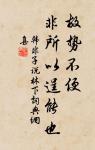 故势不便
非所以逞能也
韩非子说林下词典网
集